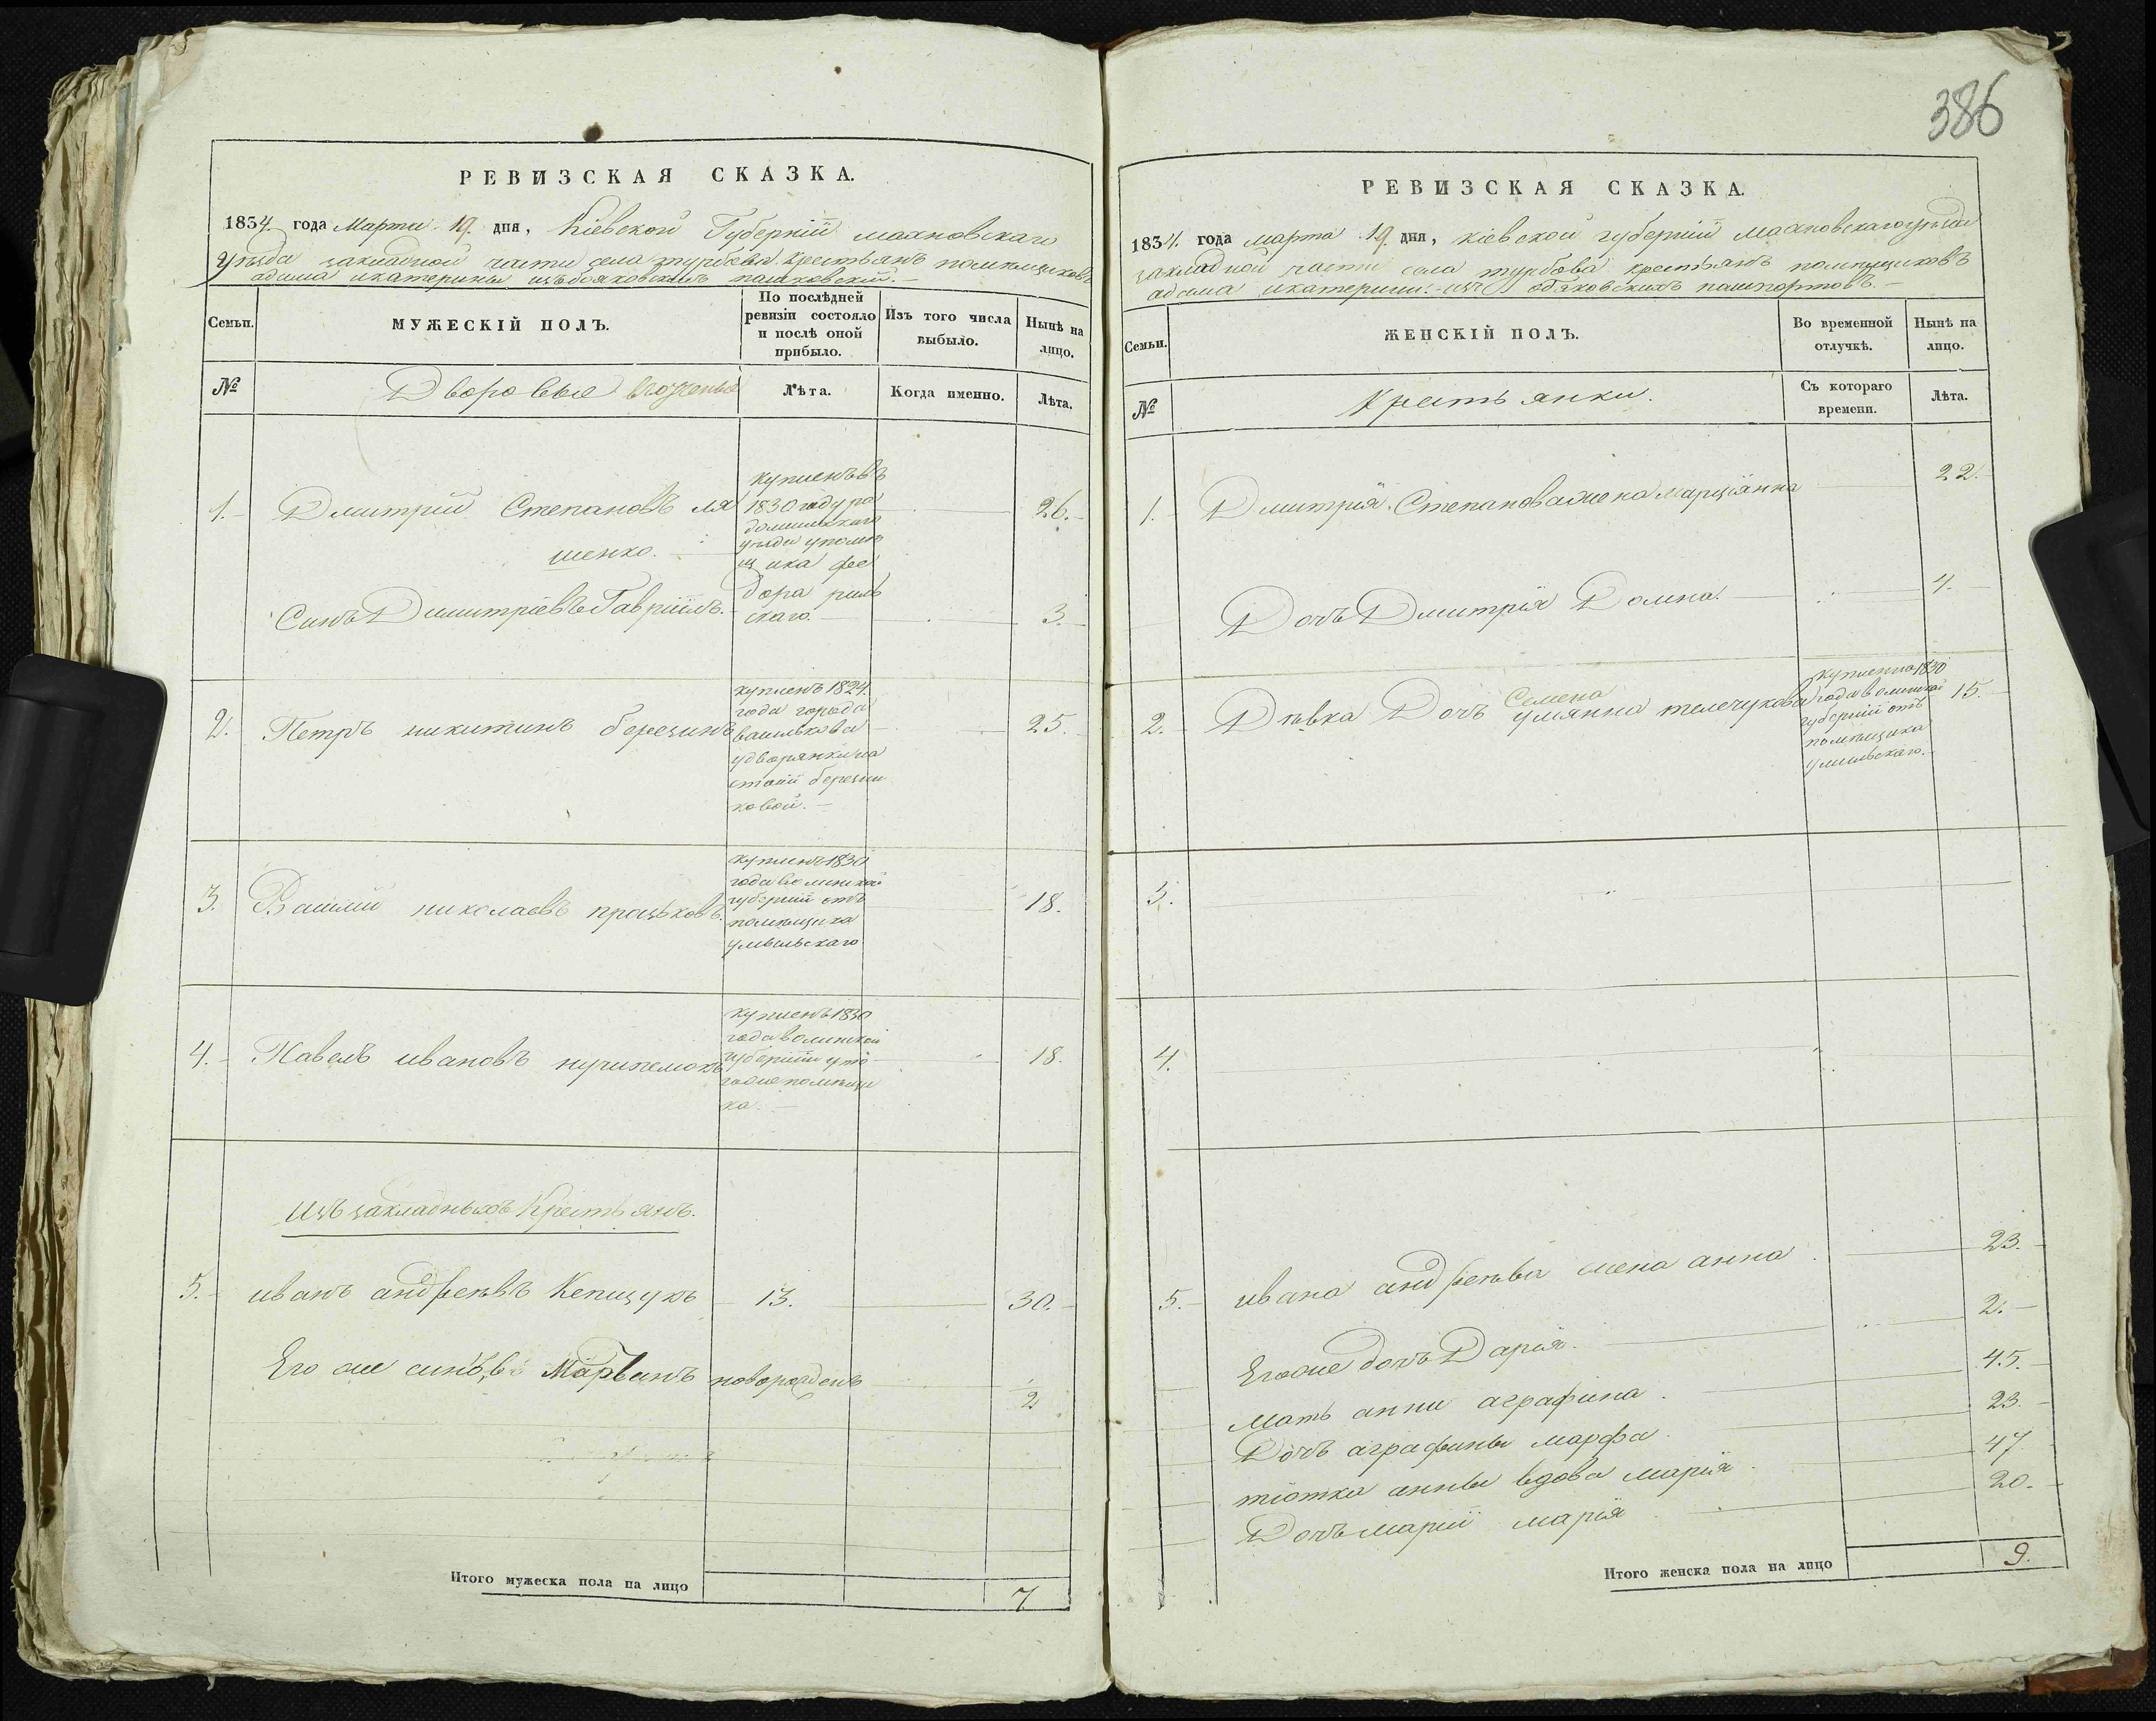 386
РЕВИЗСКАЯ СКАЗКА.
1834 года Марта 19 дня, Кіевской Губерніи махновскаго
уѣзда закладной части села турбова крестьянъ помѣщиковъ
адама икатерины изъ
Семьи.
МУЖЕСКІЙ ПОЛЪ.
По послѣдней
ревизіи состояло
и послѣ оной
прибыло.
Изъ того числа
выбыло.
Нынѣ на
лицо.
№
Дворовые
Лѣта.
Когда именно.
Лѣта.
1. Дмитрій Степановъ ля
шенко.
купленъ въ
1830 году ра
домышльскаго
уѣзда упомѣ
щика фео
дора
скаго.
26.
Синъ Димитріевъ Гавріилъ. 3.
2. Петръ никитинъ березинъ
купленъ 1824
года города
василькова
удворянки на
стасіи березни
ковой.
25.
3. Василій николаевъ процьковъ.
купленъ 1830
года волинской
губерніи отъ
помѣщика
18.
4. Павелъ ивановъ
купленъ 1830
года волинской
губерніи уто
гоже помѣщи
ка.
18.
Изъ закладныхъ Крестьянъ.
5. иванъ андреевъ Кепищукъ 13. 30.
Его же синъ Марьянъ новорожденъ 2
Итого мужеска пола на лицо 7.
РЕВИЗСКАЯ СКАЗКА.
1834. года марта 19 дня, кіевской губерніи Махновскаго уѣзда
закладной части села турбова крестьянъ помѣщиковъ
адама икатерины
Семьи.
ЖЕНСКІЙ ПОЛЪ.
Во временной
отлучкѣ.
Нынѣ на
лицо.
№
Крестьянки.
Съ котораго
времени.
Лѣта.
1. Дмитрія Степанова жена марціянна 22.
Дочъ Дмитрія Домна. 4.
2. Дѣвка Дочъ Семена улянна телечукова
куплена 1830
года волинской
губерніи отъ
помѣщика
15.
3.
4.
5. ивана андреева жена анна 23.
Его же дочъ Дарія. 2.
Мать анни аграфина. 45.
Дочъ аграфины марфа. 23.
тіотка анны вдова марія 47
Дочъ маріи марія 20.
Итого женска пола на лицо 9.